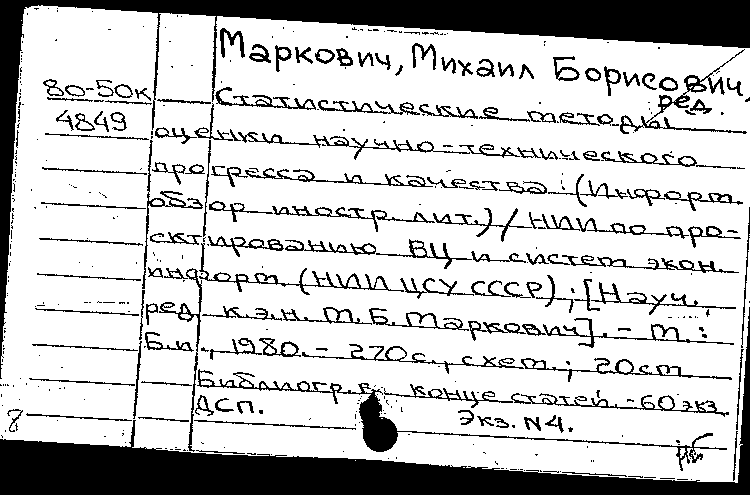 Маркович, Михаил Борисович,
ред.
80-50к
4849
Статистические методы
оценки научно-технического
прогресса и качества : (Информ.
обзор иностр. лит.) / НИИ по про-
ектированию ВЦ и систем экон.
информ. (НИИ ЦСУ СССР) ; [Науч.
ред. к.э.н. М.Б. Маркович]. - М. :
Б.и., 1980. - 270с., схем. ; 20см
Библиогр. в конце статей. - 60 экз.
ДСП.
Экз. N4.
8